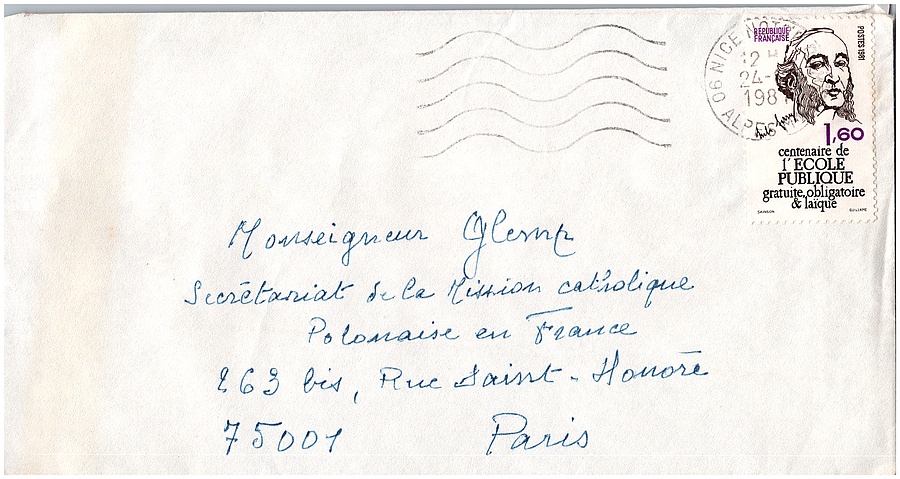 06 NICE NOT
12 H
24-
198
ALPES
REPUBLIQUE
FRANÇAISE
POSTES 1981
1,60
centenaire de
l'ECOLE
PUBLIQUE
gratuite, obligatoire
& laïque
SAINSON
GUILLAME
Monseigneur Glemp
Secrétariat de la Mission catholique
Polonaise en France
263 bis, Rue Saint-Honoré
75001 Paris